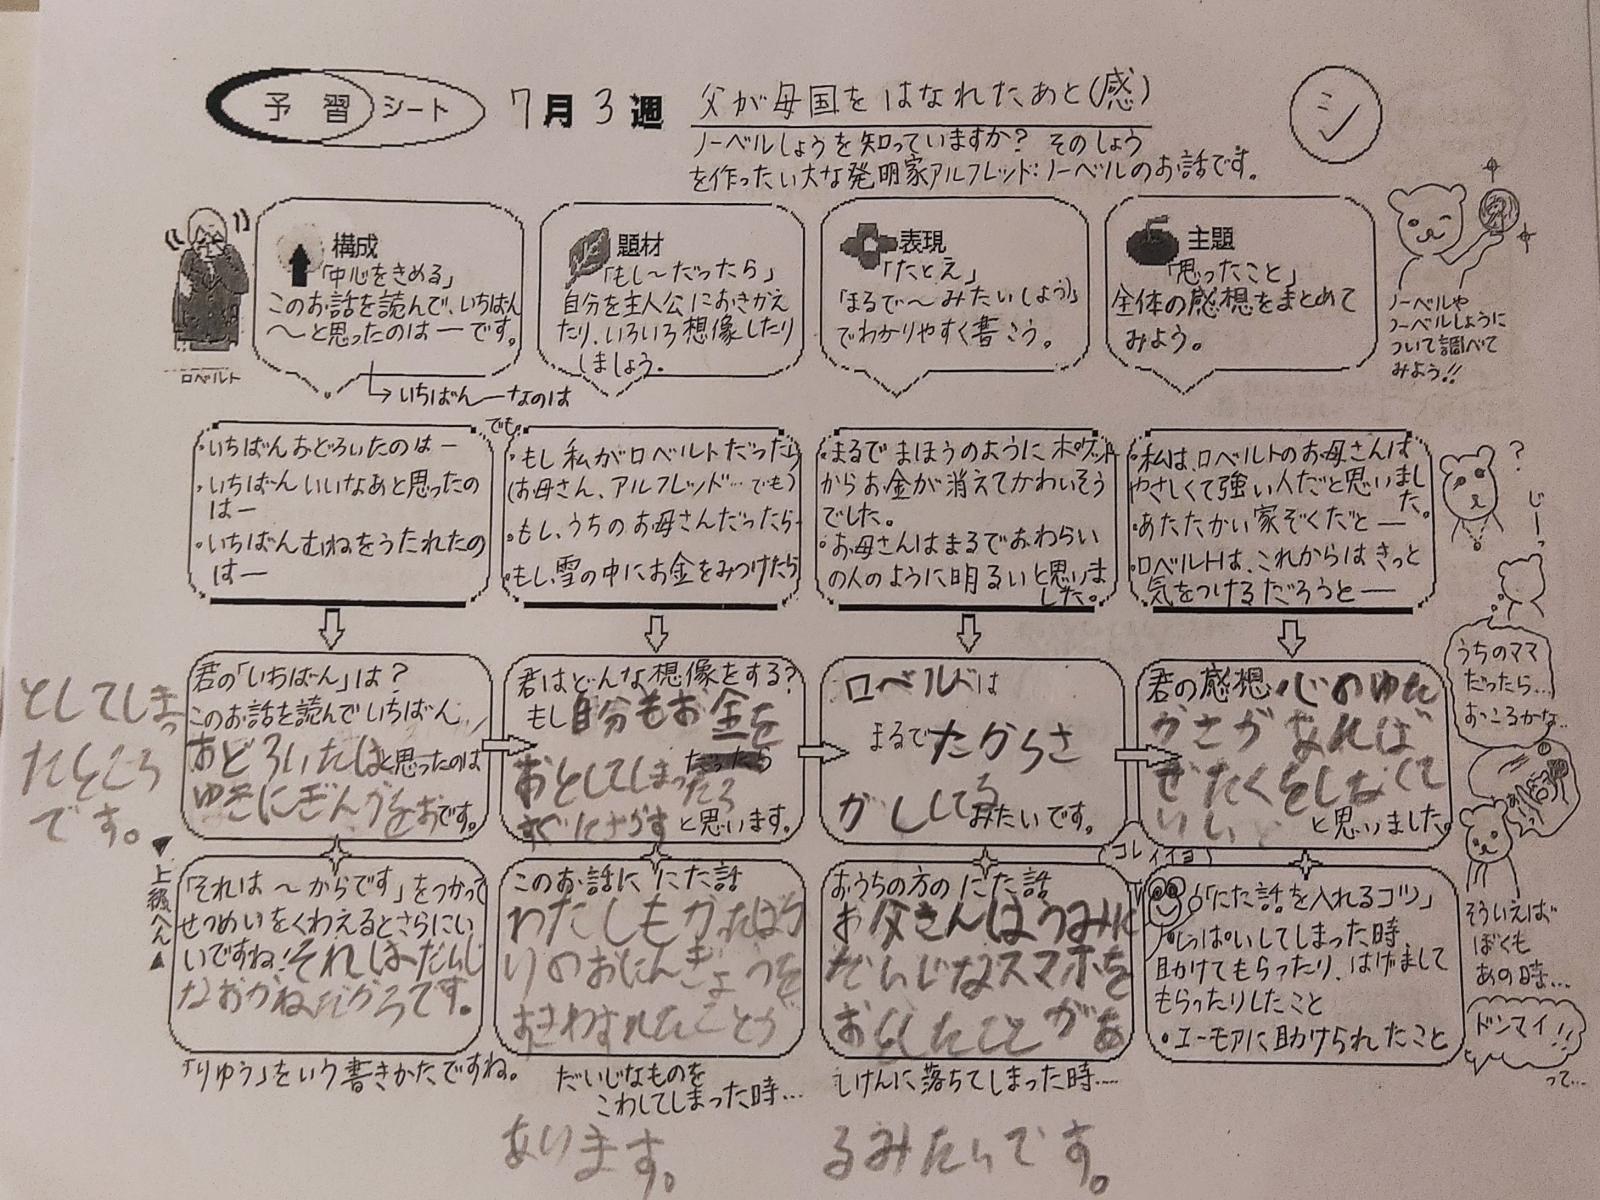 予習シート 7月3週 父が母国をはなれたあと(感)
シ
ノーベルしょうを知っていますか? そのしょう
を作ったい大な発明家アルフレッド:ノーベルのお話です。
ロベルト
構成
「中心をきめる」
このお話を読んで、いちばん
〜と思ったのは ー です。
↳いちばんーなのは
題材
「もし〜だったら」
自分を主人公におきかえ
たり、いろいろ想像したり
しましょう。
表現
「たとえ」
「まるで〜みたい(しょう)」
でわかりやすく書こう。
主題
「思ったこと」
全体の感想をまとめて
みよう。
ノーベルや
ノーベルしょうに
ついて調べて
みよう!!
・いちばんおどろいたのはー
・いちばんいいなあと思ったの
はー
・いちばんむねをうたれたの
はー
でも
・もし私がロベルトだったら
(お母さん、アルフレッド…でも)
・もし、うちのお母さんだったら
・もし、雪の中にお金をみつけたら
・まるでまほうのようにポケット
からお金が消えてかわいそう
でした。
・お母さんはまるでおわらい
の人のように明るいと思いま
した。
・私は、ロベルトのお母さんは
やさしくて強い人だと思いまし
た。
・あたたかい家ぞくだとー
・ロベルトは、これからはきっと
気をつけるだろうとー
?
じーっ
うちのママ
だったら…
おっこるかな…
君の「いちばん」は?
このお話を読んでいちばん
おどろいたはと思ったのは
ゆきにぎんかをおです。
としてしまっ
たところ
です。
君はどんな想像をする?
もし自分もお金を
おとしてしまったら
すぐにさがすと思います。
ロベルトは
まるでたからさ
がししてる
みたいです。
君の感想 心のゆた
かさがなければ
ぜたくをしなくて
いいと思いました。
▼上級へん▲
「それは〜からです」をつかって
せつめいをくわえるとさらにい
いですね!それはだいじ
なおかねだからです。
「りゆう」をいう書きかたですね。
このお話ににた話
わたしもがったばり
りのおにんぎょうを
おきわすれたことが
だいじなものを
こわしてしまった時…
あります。
おうちの方のにた話
お父さんはうみに
だいじなスマホを
おとしたことがあ
しけんに落ちてしまった時……
るみたいです。
コレイイヨ
「にた話を入れるコツ」
・しっぱいしてしまった時
助けてもらったり、はげまして
もらったりしたこと
・ユーモアに助けられたこと
そういえば
ぼくも
あの時…
ドンマイ!!
って…